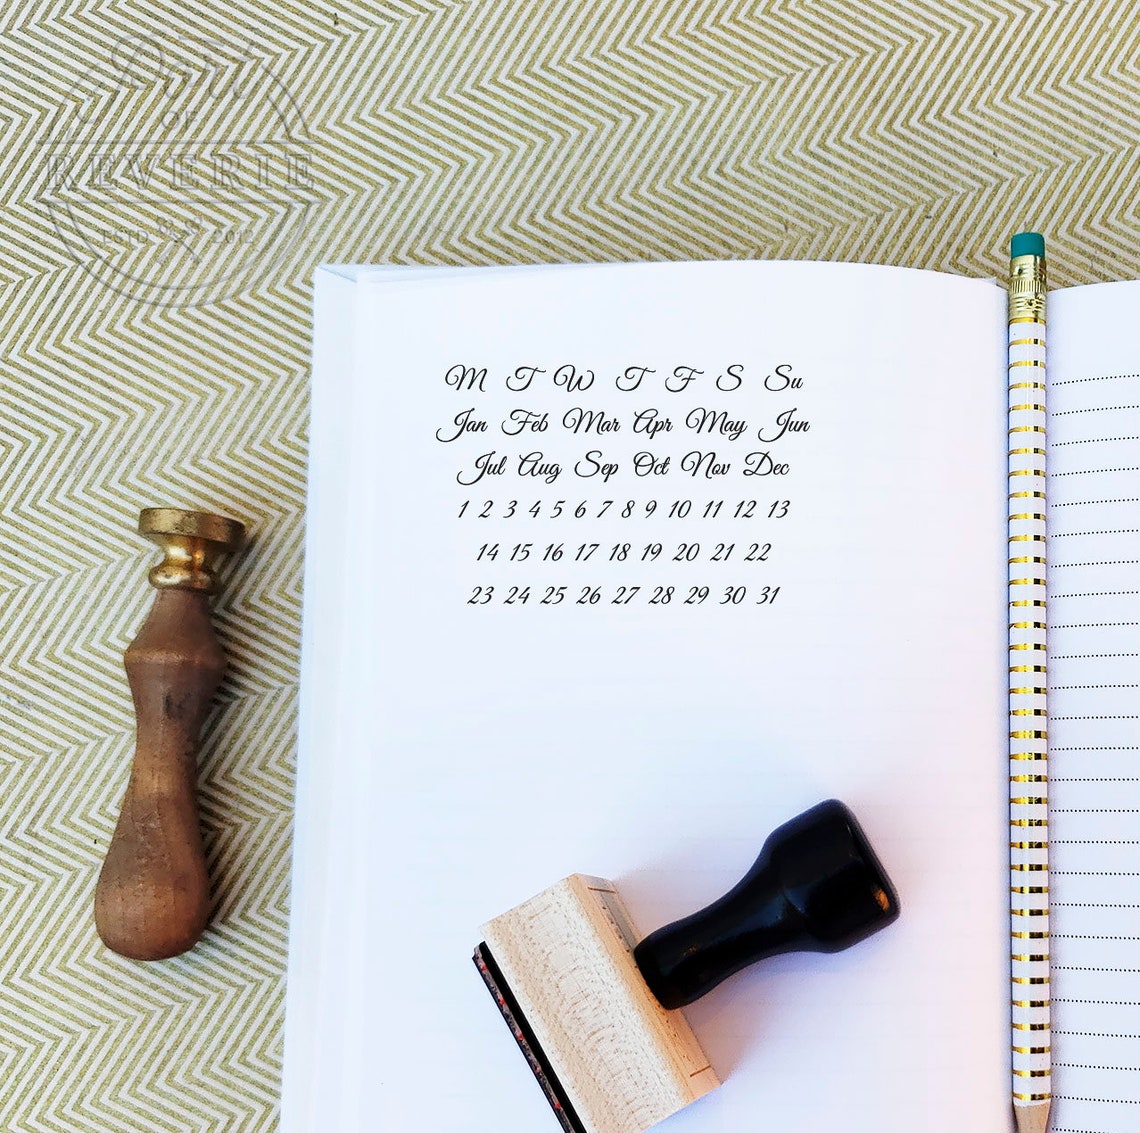 OF
REVERIE
ESTD 2012
M T W T F S Su
Jan Feb Mar Apr May Jun
Jul Aug Sep Oct Nov Dec
1 2 3 4 5 6 7 8 9 10 11 12 13
14 15 16 17 18 19 20 21 22
23 24 25 26 27 28 29 30 31